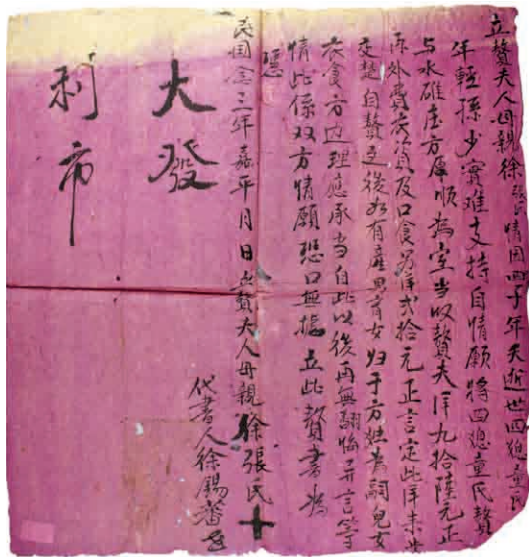 立贅夫人母親徐張氏情因四子年夭逝世四媳童氏
年輕孫少實难支持自情願將四媳童氏贅
与水碓莊方厚順為室当収贅夫洋九拾陸元正
再外費衣資及口食為洋弍拾元正言定此洋未
交楚自贅之後如有產男育女归于方姓為嗣兒女
衣食方边理應承当自此以後再無翻悔異言等
情此係双方情願恐口無據立此贅書為
憑
民国念三年嘉平月日立贅夫人母親徐張氏十
代書人徐錫
大發
利市